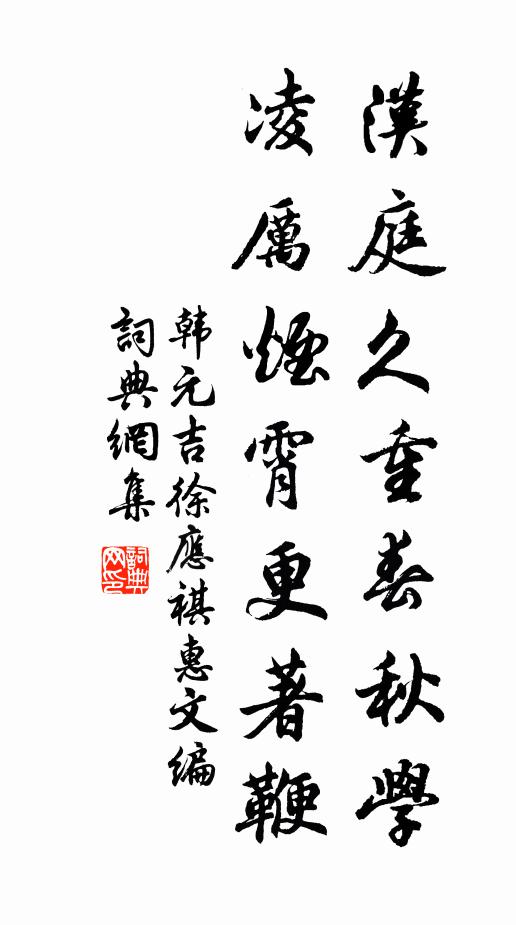 漢庭久重春秋學
凌厲煙霄更著鞭
韩元吉徐應祺惠文编
詞典網集
詞典网印